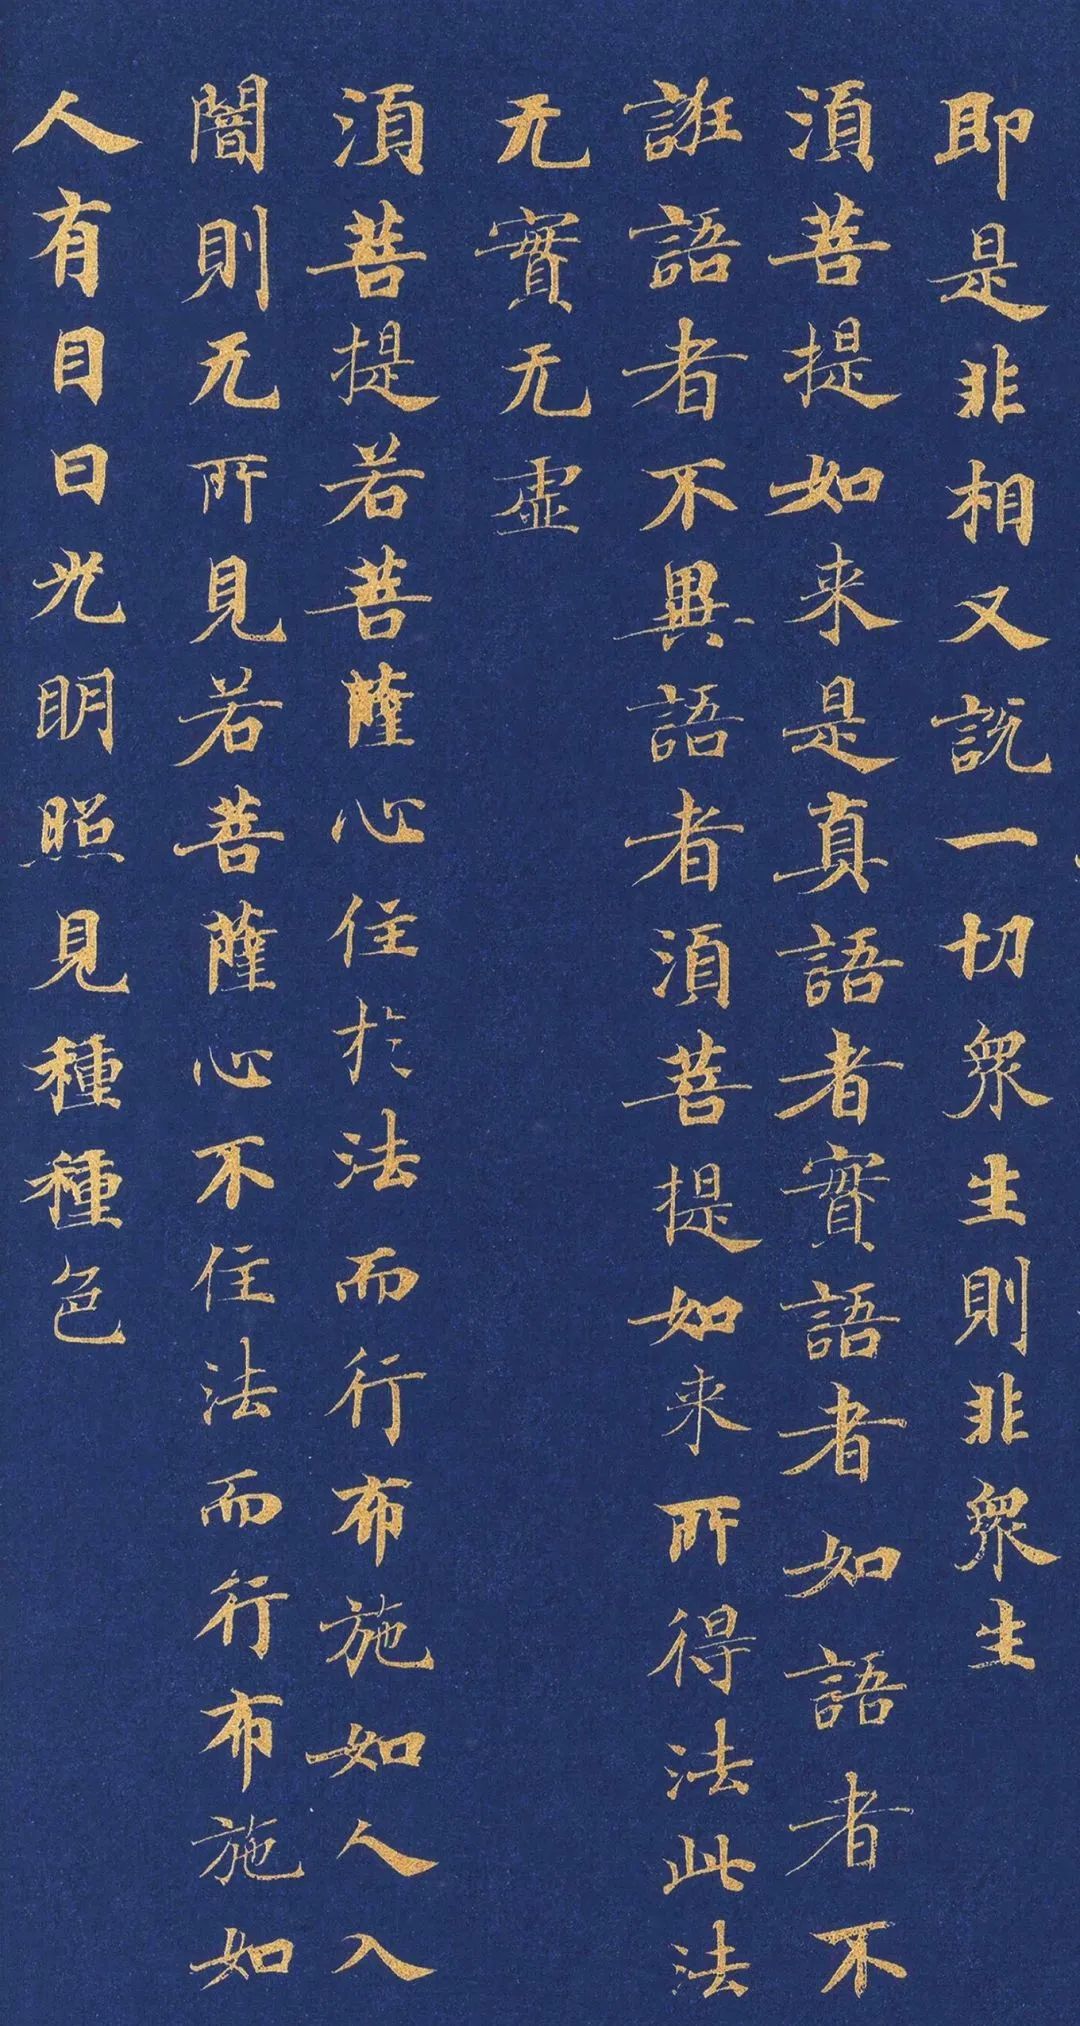 即是非相又説一切衆生則非衆生
須菩提如来是真語者實語者如語者不
誑語者不異語者須菩提如来所得法此法
无實无虛
須菩提若菩薩心住於法而行布施如人入
闇則无所見若菩薩心不住法而行布施如
人有目日光明照見種種色